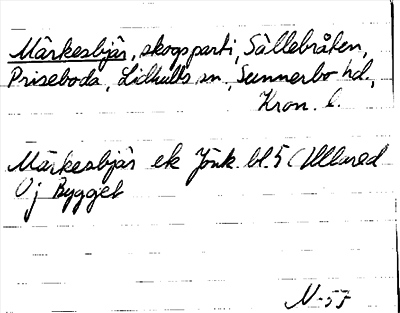 Märkesbjär, skogsparti, Sällebråten,
Priseboda, Lidhults sn., Sunnerbo hd.,
Kron. l.
Märkesbjär ek Jönk. bl. 5 (Ullared
Oj Bygget
N-55